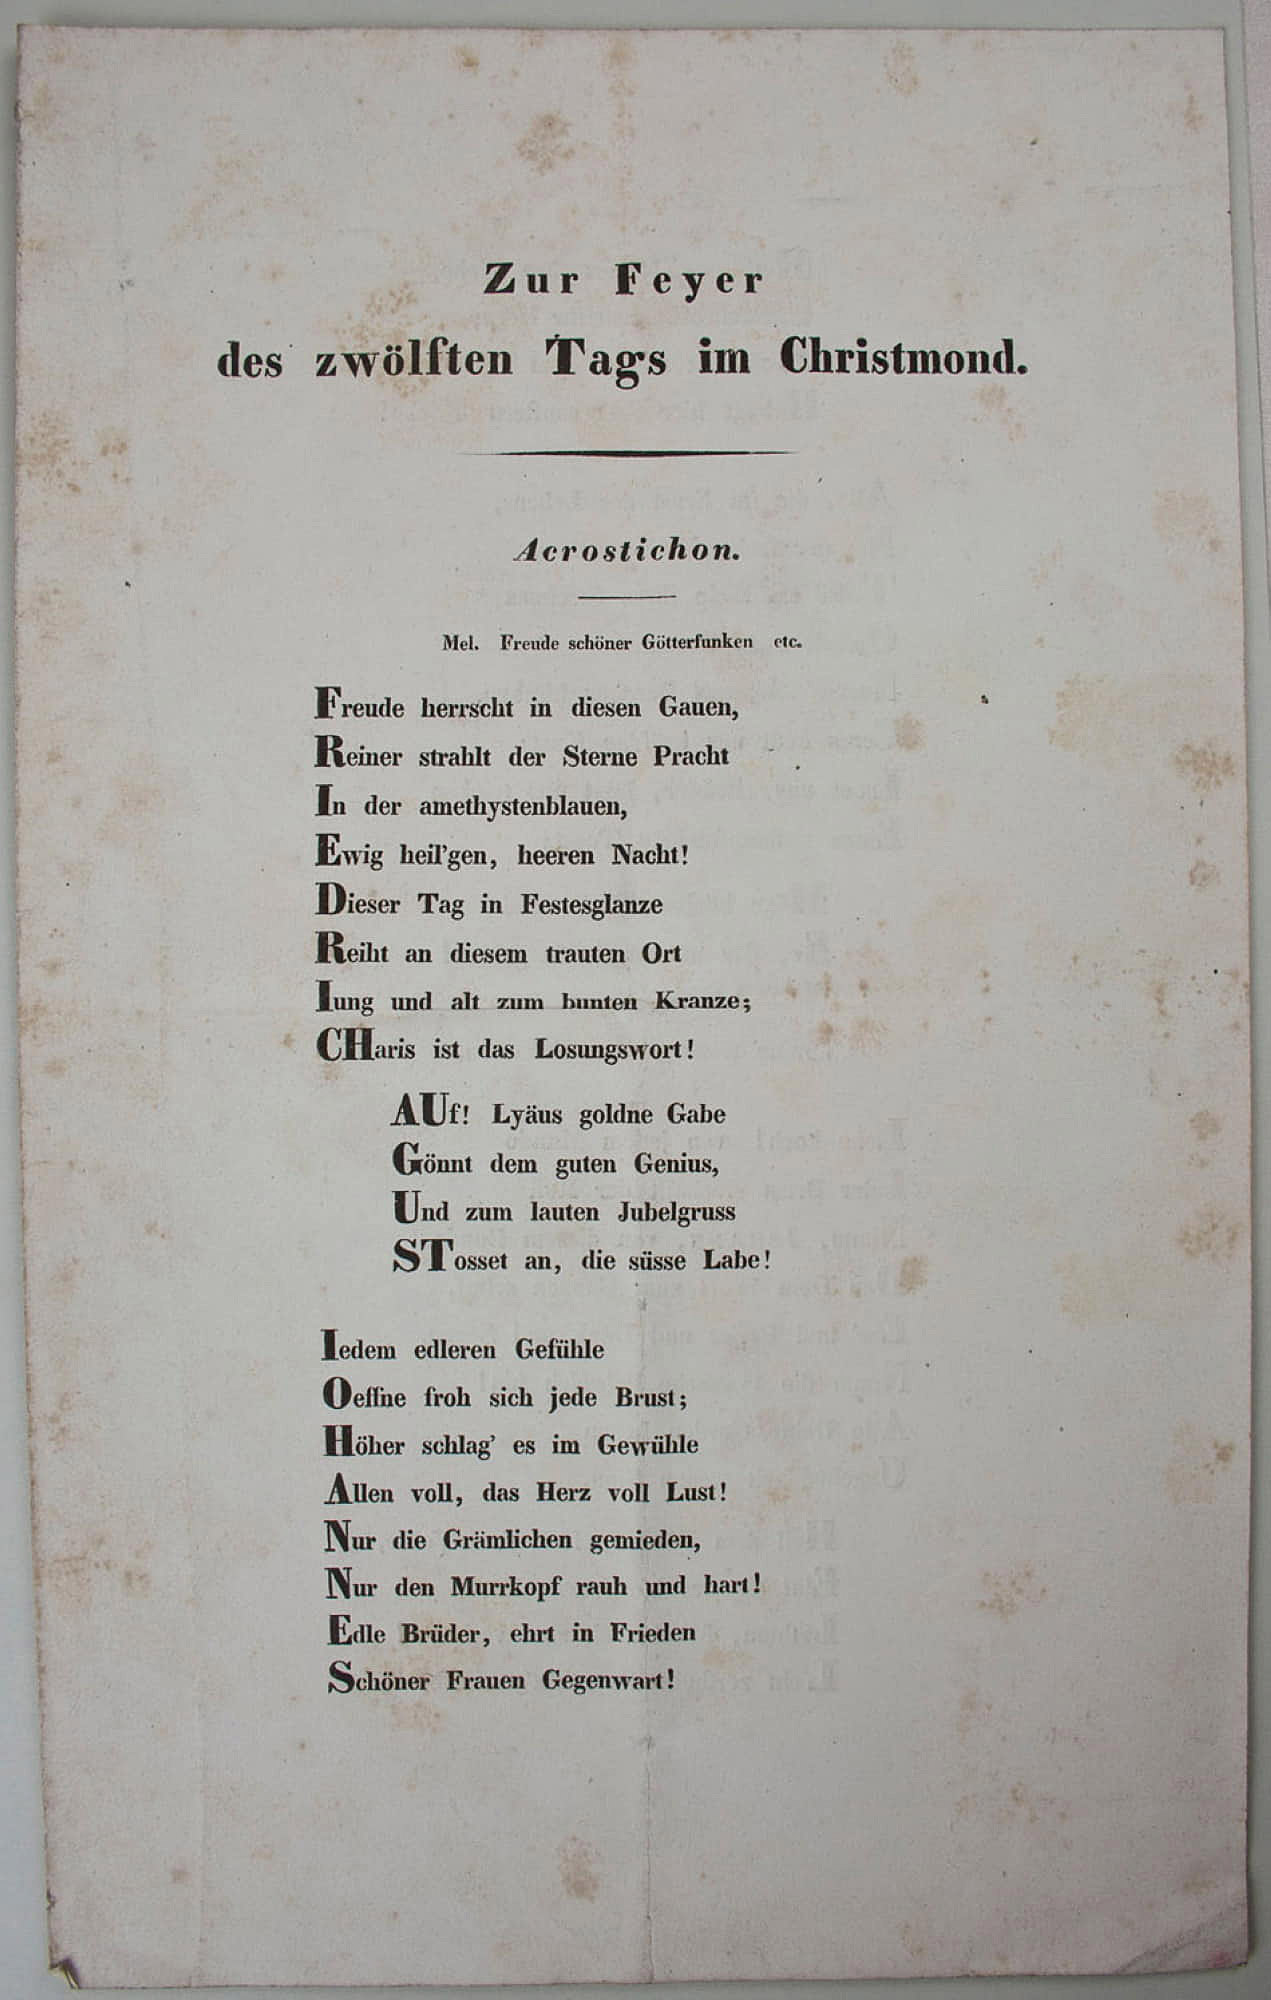 Zur Feyer
des zwölften Tags im Christmond.
Acrostichon.
Mel. Freude schöner Götterfunken etc.
Freude herrscht in diesen Gauen,
Reiner strahlt der Sterne Pracht
In der amethystenblauen,
Ewig heil'gen, heeren Nacht!
Dieser Tag in Festesglanze
Reiht an diesem trauten Ort
Iung und alt zum bunten Kranze;
CHaris ist das Losungswort!
AUf! Lyäus goldne Gabe
Gönnt dem guten Genius,
Und zum lauten Jubelgruss
STosset an, die süsse Labe!
Iedem edleren Gefühle
Oeffne froh sich jede Brust;
Höher schlag' es im Gewühle
Allen voll, das Herz voll Lust!
Nur die Grämlichen gemieden,
Nur den Murrkopf rauh und hart!
Edle Brüder, ehrt in Frieden
Schöner Frauen Gegenwart!